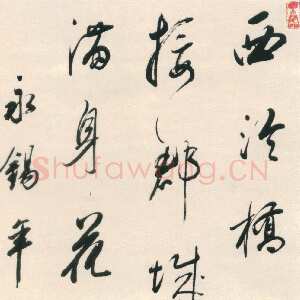 西泠橋
接郡城
满身花
永錫年
ShufaWang.CN